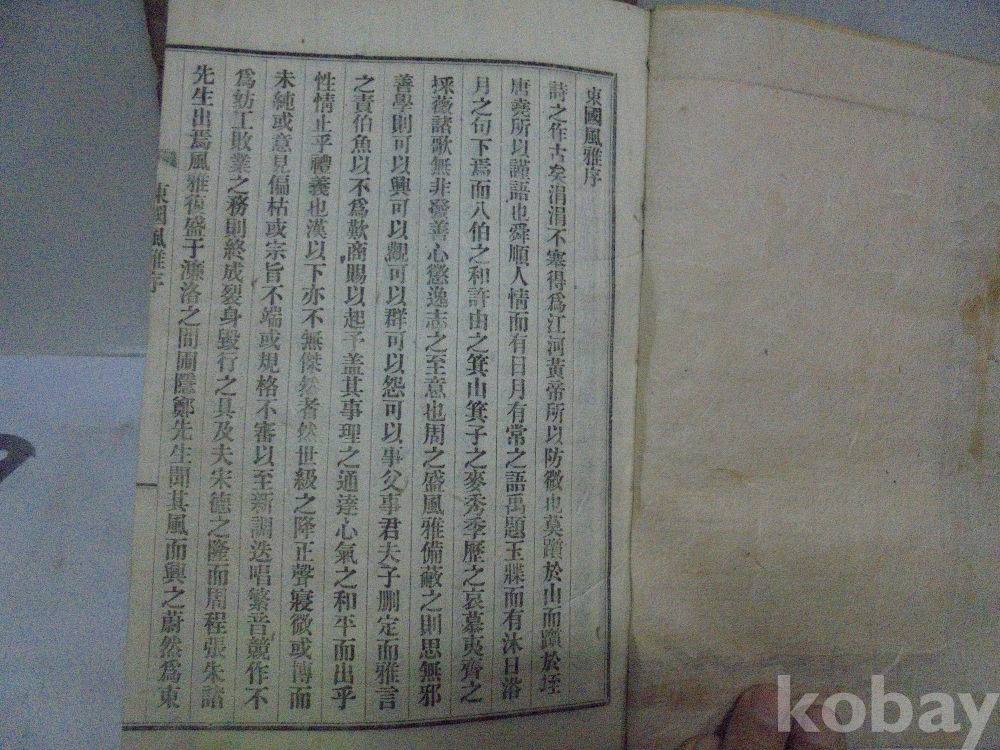 東國風雅序
詩之作古矣涓涓不塞得爲江河黃帝所以防微也莫躓於山而躓於垤
唐堯所以謹語也舜順人情而有日月有常之語禹題玉牒而有沐日浴
月之句下焉而八伯之和許由之箕山箕子之麥秀季歷之哀慕夷齊之
採薇諸歌無非發善心懲逸志之至意也周之盛風雅備蔽之則思無邪
善學則可以興可以觀可以群可以怨可以事父事君夫子刪定而雅言
之責伯魚以不爲歎商賜以起予盖其事理之通達心氣之和平而出乎
性情止乎禮義也漢以下亦不無傑然者然世級之降正聲寢微或博而
未純或意見偏枯或宗旨不端或規格不審以至新調迭唱繁音競作不
爲紡工敗業之務則終成裂身毀行之具及夫宋德之隆而周程張朱諸
先生出焉風雅復盛于濂洛之間圃隱鄭先生聞其風而興之蔚然爲東
東國風雅序
kobay